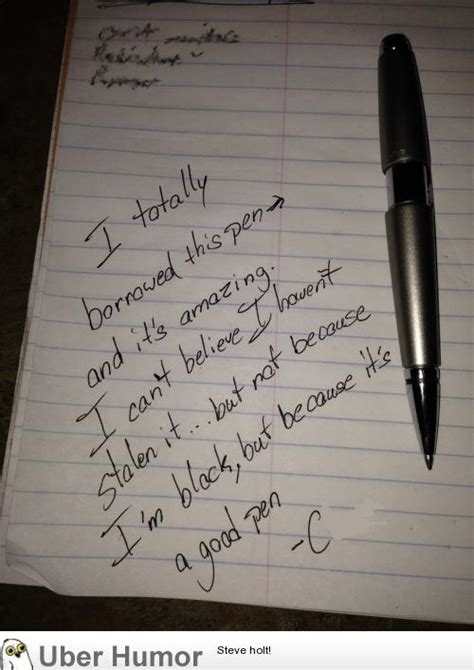 I totally
borrowed this pen →
and it's amazing.
I can't believe I haven't
stolen it... but not because
I'm black, but because it's
a good pen
-C
Uber Humor
Steve holt!